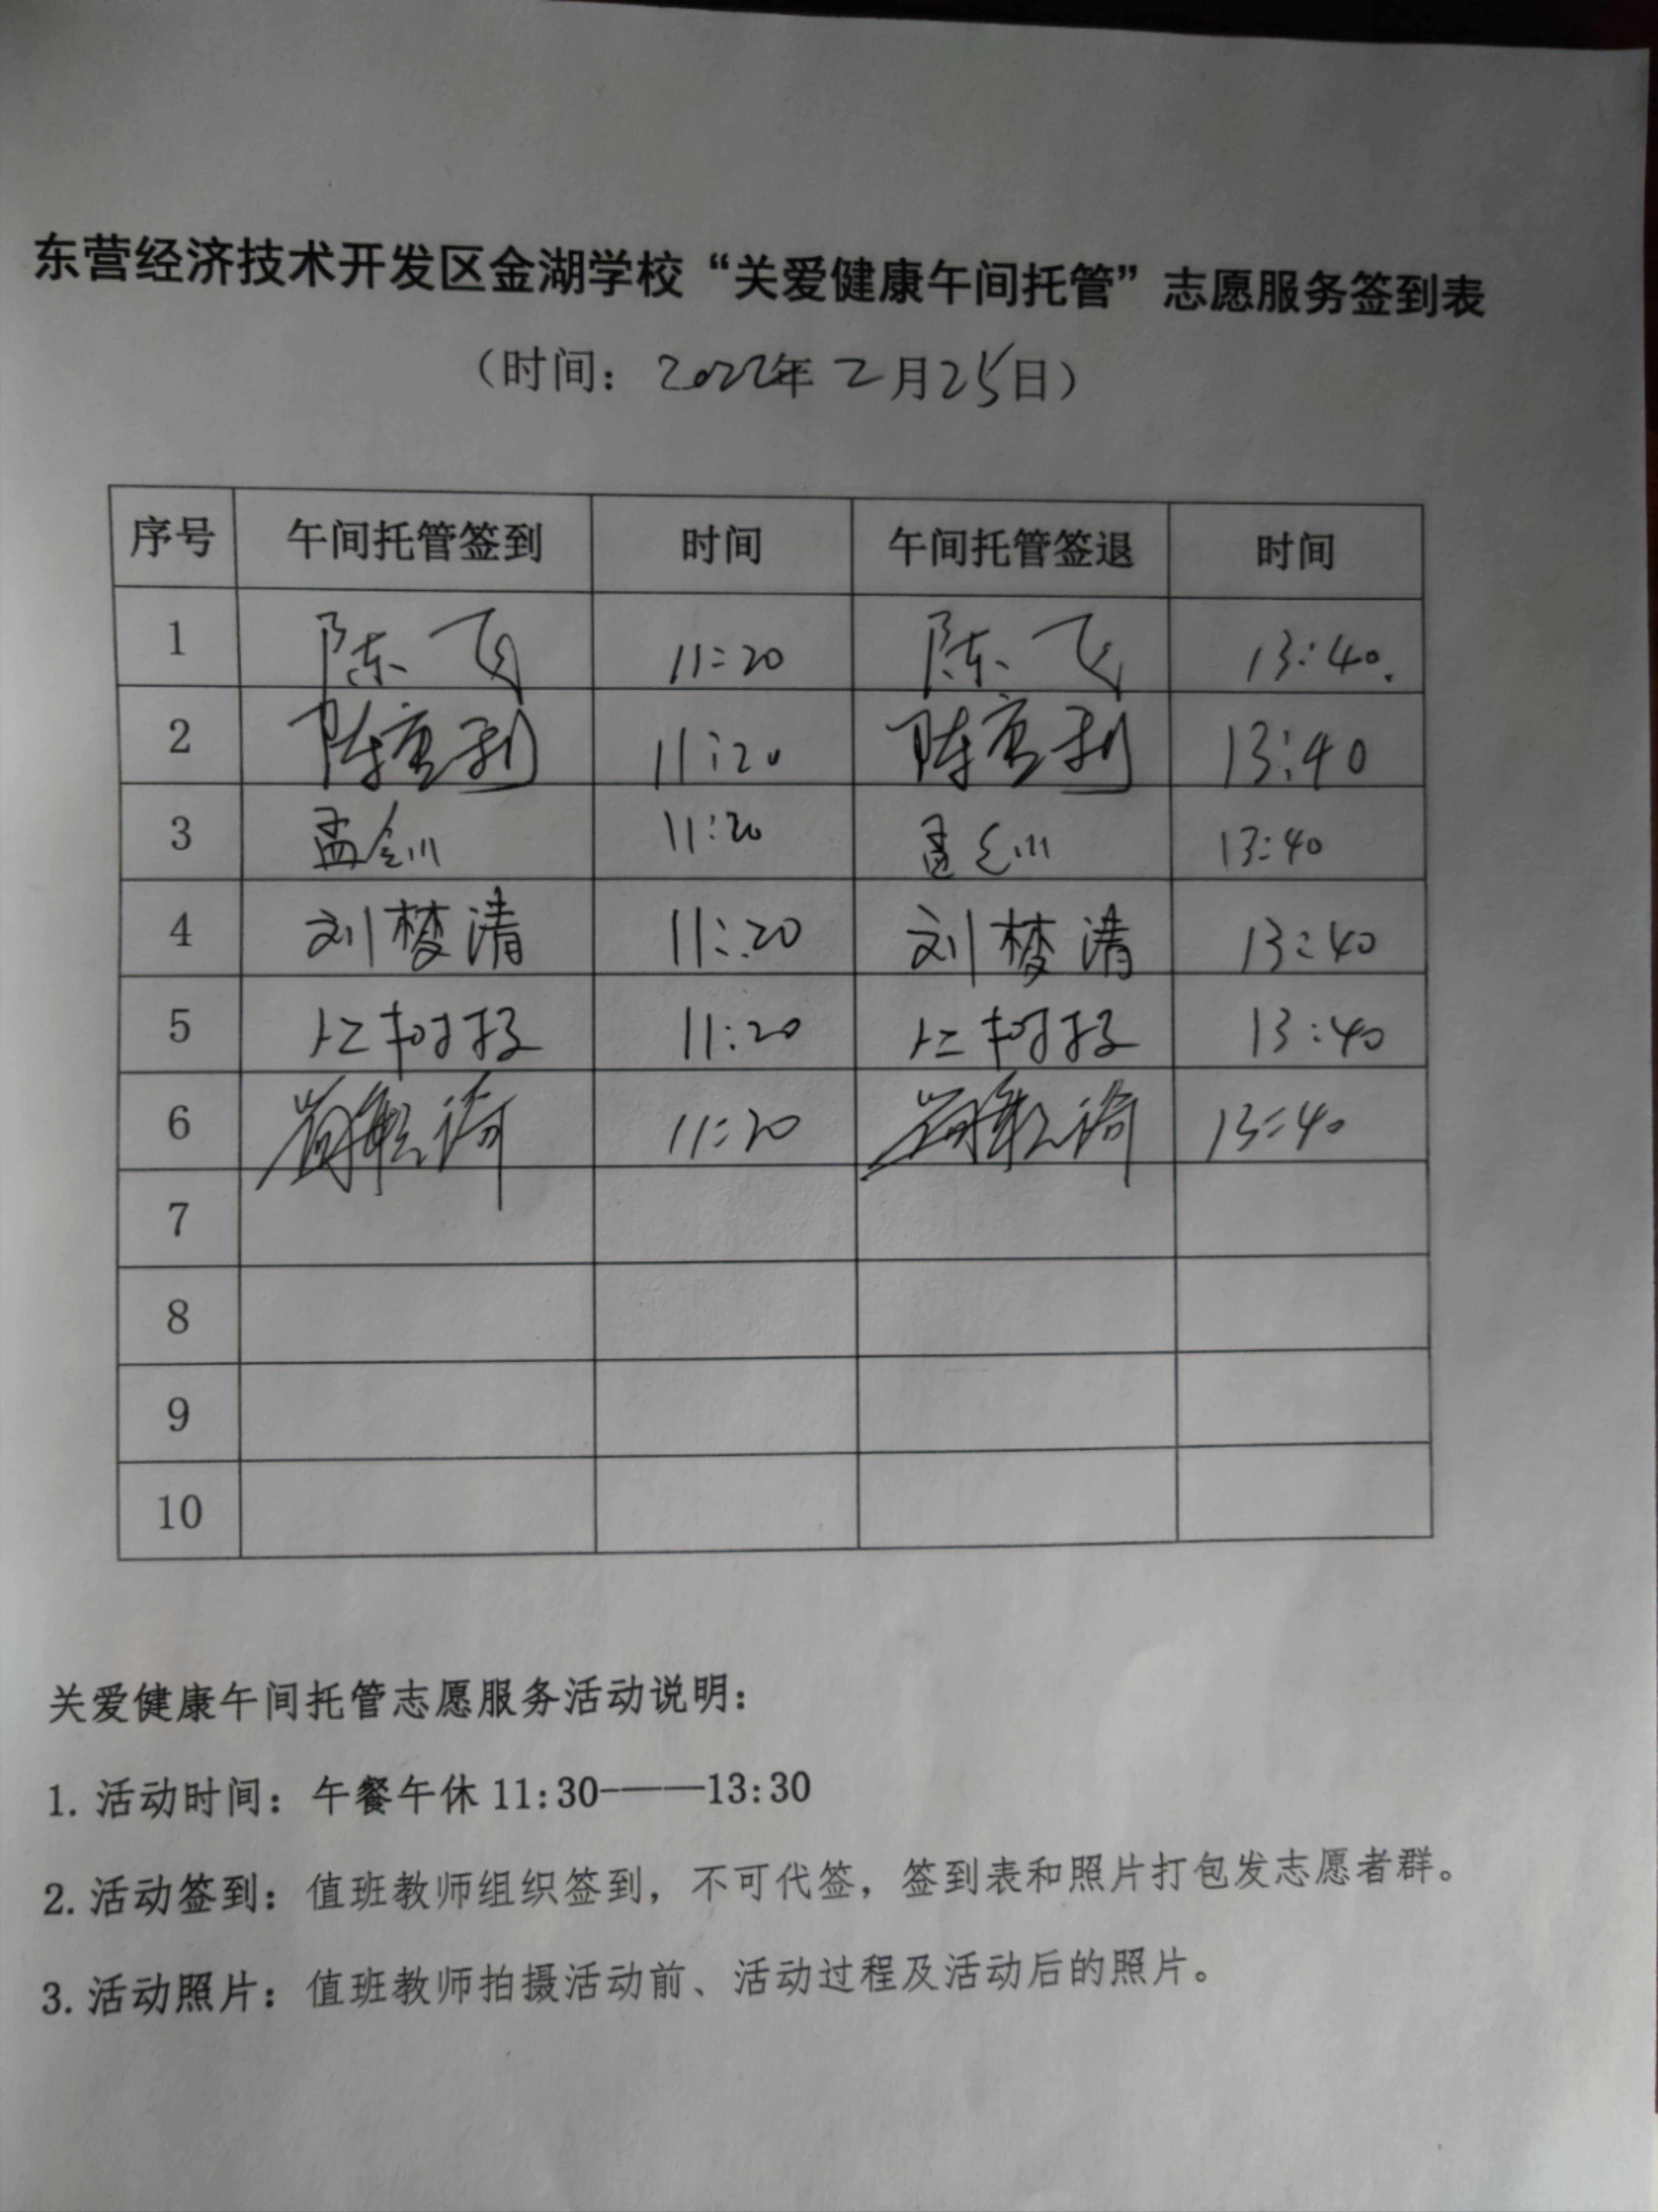 东营经济技术开发区金湖学校“关爱健康午间托管”志愿服务签到表
（时间：2022年 2月25日）
序号 午间托管签到 时间 午间托管签退 时间
1 陈飞 11:20 陈飞 13:40.
2 11:20 13:40
3 孟 11:20 孟 13:40
4 刘梦清 11:20 刘梦清 13:40
5 11:20 13:40
6 11:20 13:40
7
8
9
10
关爱健康午间托管志愿服务活动说明：
1.活动时间：午餐午休 11:30-——13:30
2.活动签到：值班教师组织签到，不可代签，签到表和照片打包发志愿者群。
3.活动照片：值班教师拍摄活动前、活动过程及活动后的照片。